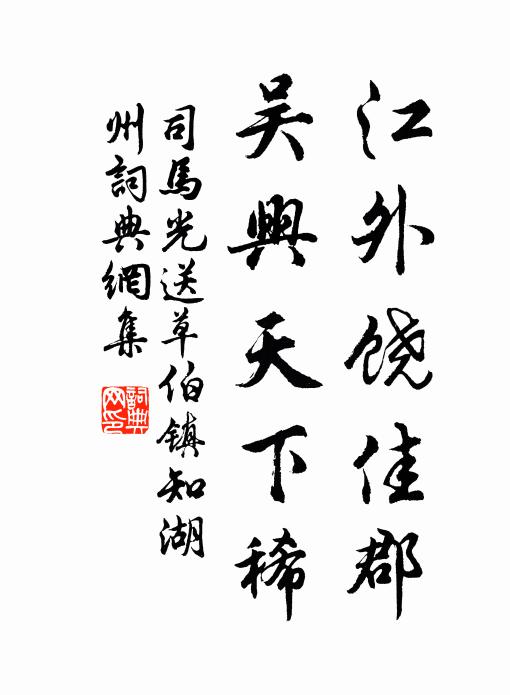 江外饶佳郡
吴興天下稀
司馬光送草伯镇知湖
州詞典網集
詞典网印